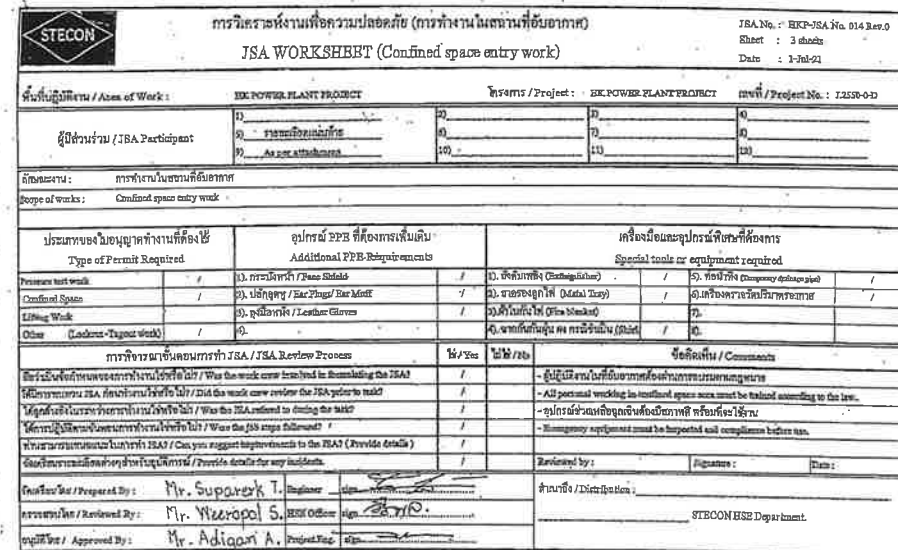 STECON
การวิเคราะห์งานเพื่อความปลอดภัย (การทำงานในสถานที่อับอากาศ)
JSA WORKSHEET (Confined space entry work)
JSA No. : HKP-JSA No. 014 Rev.0
Sheet : 3 sheets
Date : 1-Jul-21
พื้นที่ปฏิบัติงาน / Area of Work : HK POWER PLANT PROJECT
โครงการ / Project : HK POWER PLANT PROJECT
เลขที่ / Project No. : J.2550-0-D
ผู้มีส่วนร่วม / JSA Participant
1) 2) 3) 4)
5) รายละเอียดแนบท้าย 6) 7) 8)
9) As per attachment 10) 11) 12)
ลักษณะงาน : การทำงานในสถานที่อับอากาศ
Scope of works : Confined space entry work
ประเภทของใบอนุญาตทำงานที่ต้องใช้
Type of Permit Required
อุปกรณ์ PPE ที่ต้องการเพิ่มเติม
Additional PPE Requirements
เครื่องมือและอุปกรณ์พิเศษที่ต้องการ
Special tools or equipment required
Pressure test work 1). กระบังหน้า / Face Shield / 1). ถังดับเพลิง (Extinguisher) / 5). ท่อน้ำทิ้ง (Temporary drainage pipe) /
Confined Space / 2). ปลั๊กอุดหู / Ear Plugs/ Ear Muff / 2). ถาดรองลูกไฟ (Metal Tray) / 6).เครื่องตรวจวัดปริมาตรอากาศ /
Lifting Work 3). ถุงมือหนัง / Leather Gloves / 3).ผ้าใบกันไฟ (Fire blanket) / 7).
Other (Lockout - Tagout work) / 4). / 8).
การพิจารณาขั้นตอนการทำ JSA / JSA Review Process ใช่ / Yes ไม่ใช่ / No ข้อคิดเห็น / Comments
Was the work crew involved in formulating the JSA? / - ผู้ปฏิบัติงานในที่อับอากาศต้องผ่านการอบรมตามกฎหมาย
Did the work crew review the JSA prior to task? / - All personal working in confined space area must be trained according to the law.
Was the JSA referred to during the task? / - อุปกรณ์ช่วยเหลือฉุกเฉินต้องมีสภาพดี พร้อมที่จะใช้งาน
Were the job steps followed? / - Emergency equipment must be inspected and compliance before use.
Can you suggest improvements to the JSA? (Provide details) /
Provide details for any incidents. / Reviewed by : Signature : Date :
จัดเตรียมโดย / Prepared By : Mr. Suparerk T. Engineer sign
สำเนาถึง / Distribution :
ตรวจสอบโดย / Reviewed By : Mr. Weerapol S. HSE Officer sign
STECON HSE Department.
อนุมัติโดย / Approved By : Mr. Adigan A. Project Eng. sign